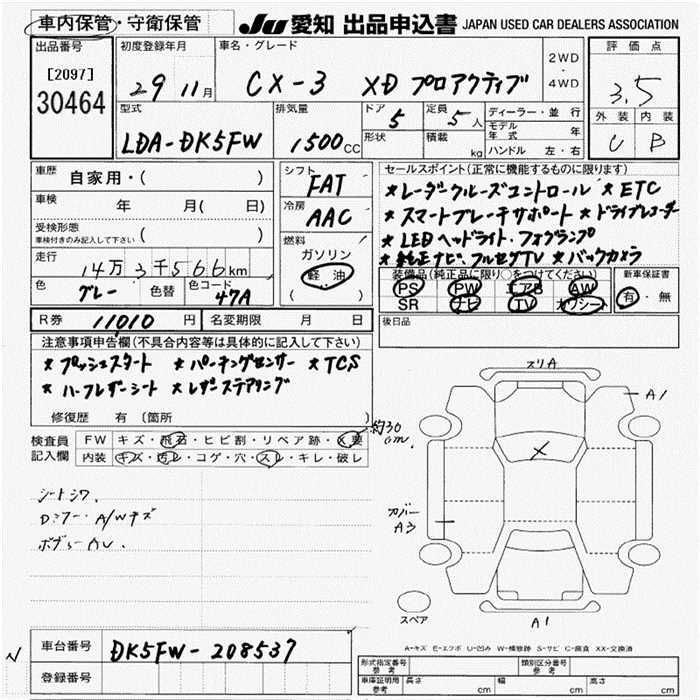 車内保管・守衛保管
JU 愛知 出品申込書 JAPAN USED CAR DEALERS ASSOCIATION
出品番号
[2097]
30464
初度登録年月
29 11月
車名・グレード
CX-3 XD プロアクティブ
2WD
・
4WD
評価点
3.5
外装 内装
C B
型式
LDA-DK5FW
排気量
1500cc
ドア 5
形状
定員 5人
積載 kg
ディーラー・並行
モデル年式 年
ハンドル 左・右
車歴
自家用・( )
車検 年 月( 日)
受検形態
車検付きのみ記入して下さい ( )
走行
14万3千566km
色 グレー 色替 色コード 47A
シフト
FAT
冷房
AAC
燃料
ガソリン
軽油
( )
セールスポイント(正常に機能するものに限ります)
★レーダークルーズコントロール ★ETC
★スマートブレーキサポート ★ドライブレコーダー
★LEDヘッドライト・フォグランプ
★純正ナビ・フルセグTV ★バックカメラ
装備品(純正品に限り○をつけてください)
PS PW エアB AW
SR ナビ TV カワシート
新車保証書
有・無
R券 11010円 名変期限 月 日
後日品
注意事項申告欄(不具合内容等は具体的に記入して下さい)
★プッシュスタート ★パーキングセンサー ★TCS
★ハーフレザーシート ★レザーステアリング
修復歴 有 〔箇所 〕
検査員
記入欄
FW キズ・飛石・ヒビ割・リペア跡・X要
内装 キズ・汚レ・コゲ・穴・スレ・キレ・破レ
約30cm
シートシワ
A/Wキズ
スリA
A1
カバー
A3
A1
スペア
A-キズ E-エクボ U-凹み W-補修跡 S-サビ C-腐食 XX-交換済
車台番号 DK5FW-208537
登録番号
形式指定番号
参考
類別区分番号
参考
車庫証明用
参考
長さ cm 幅 cm 高さ cm